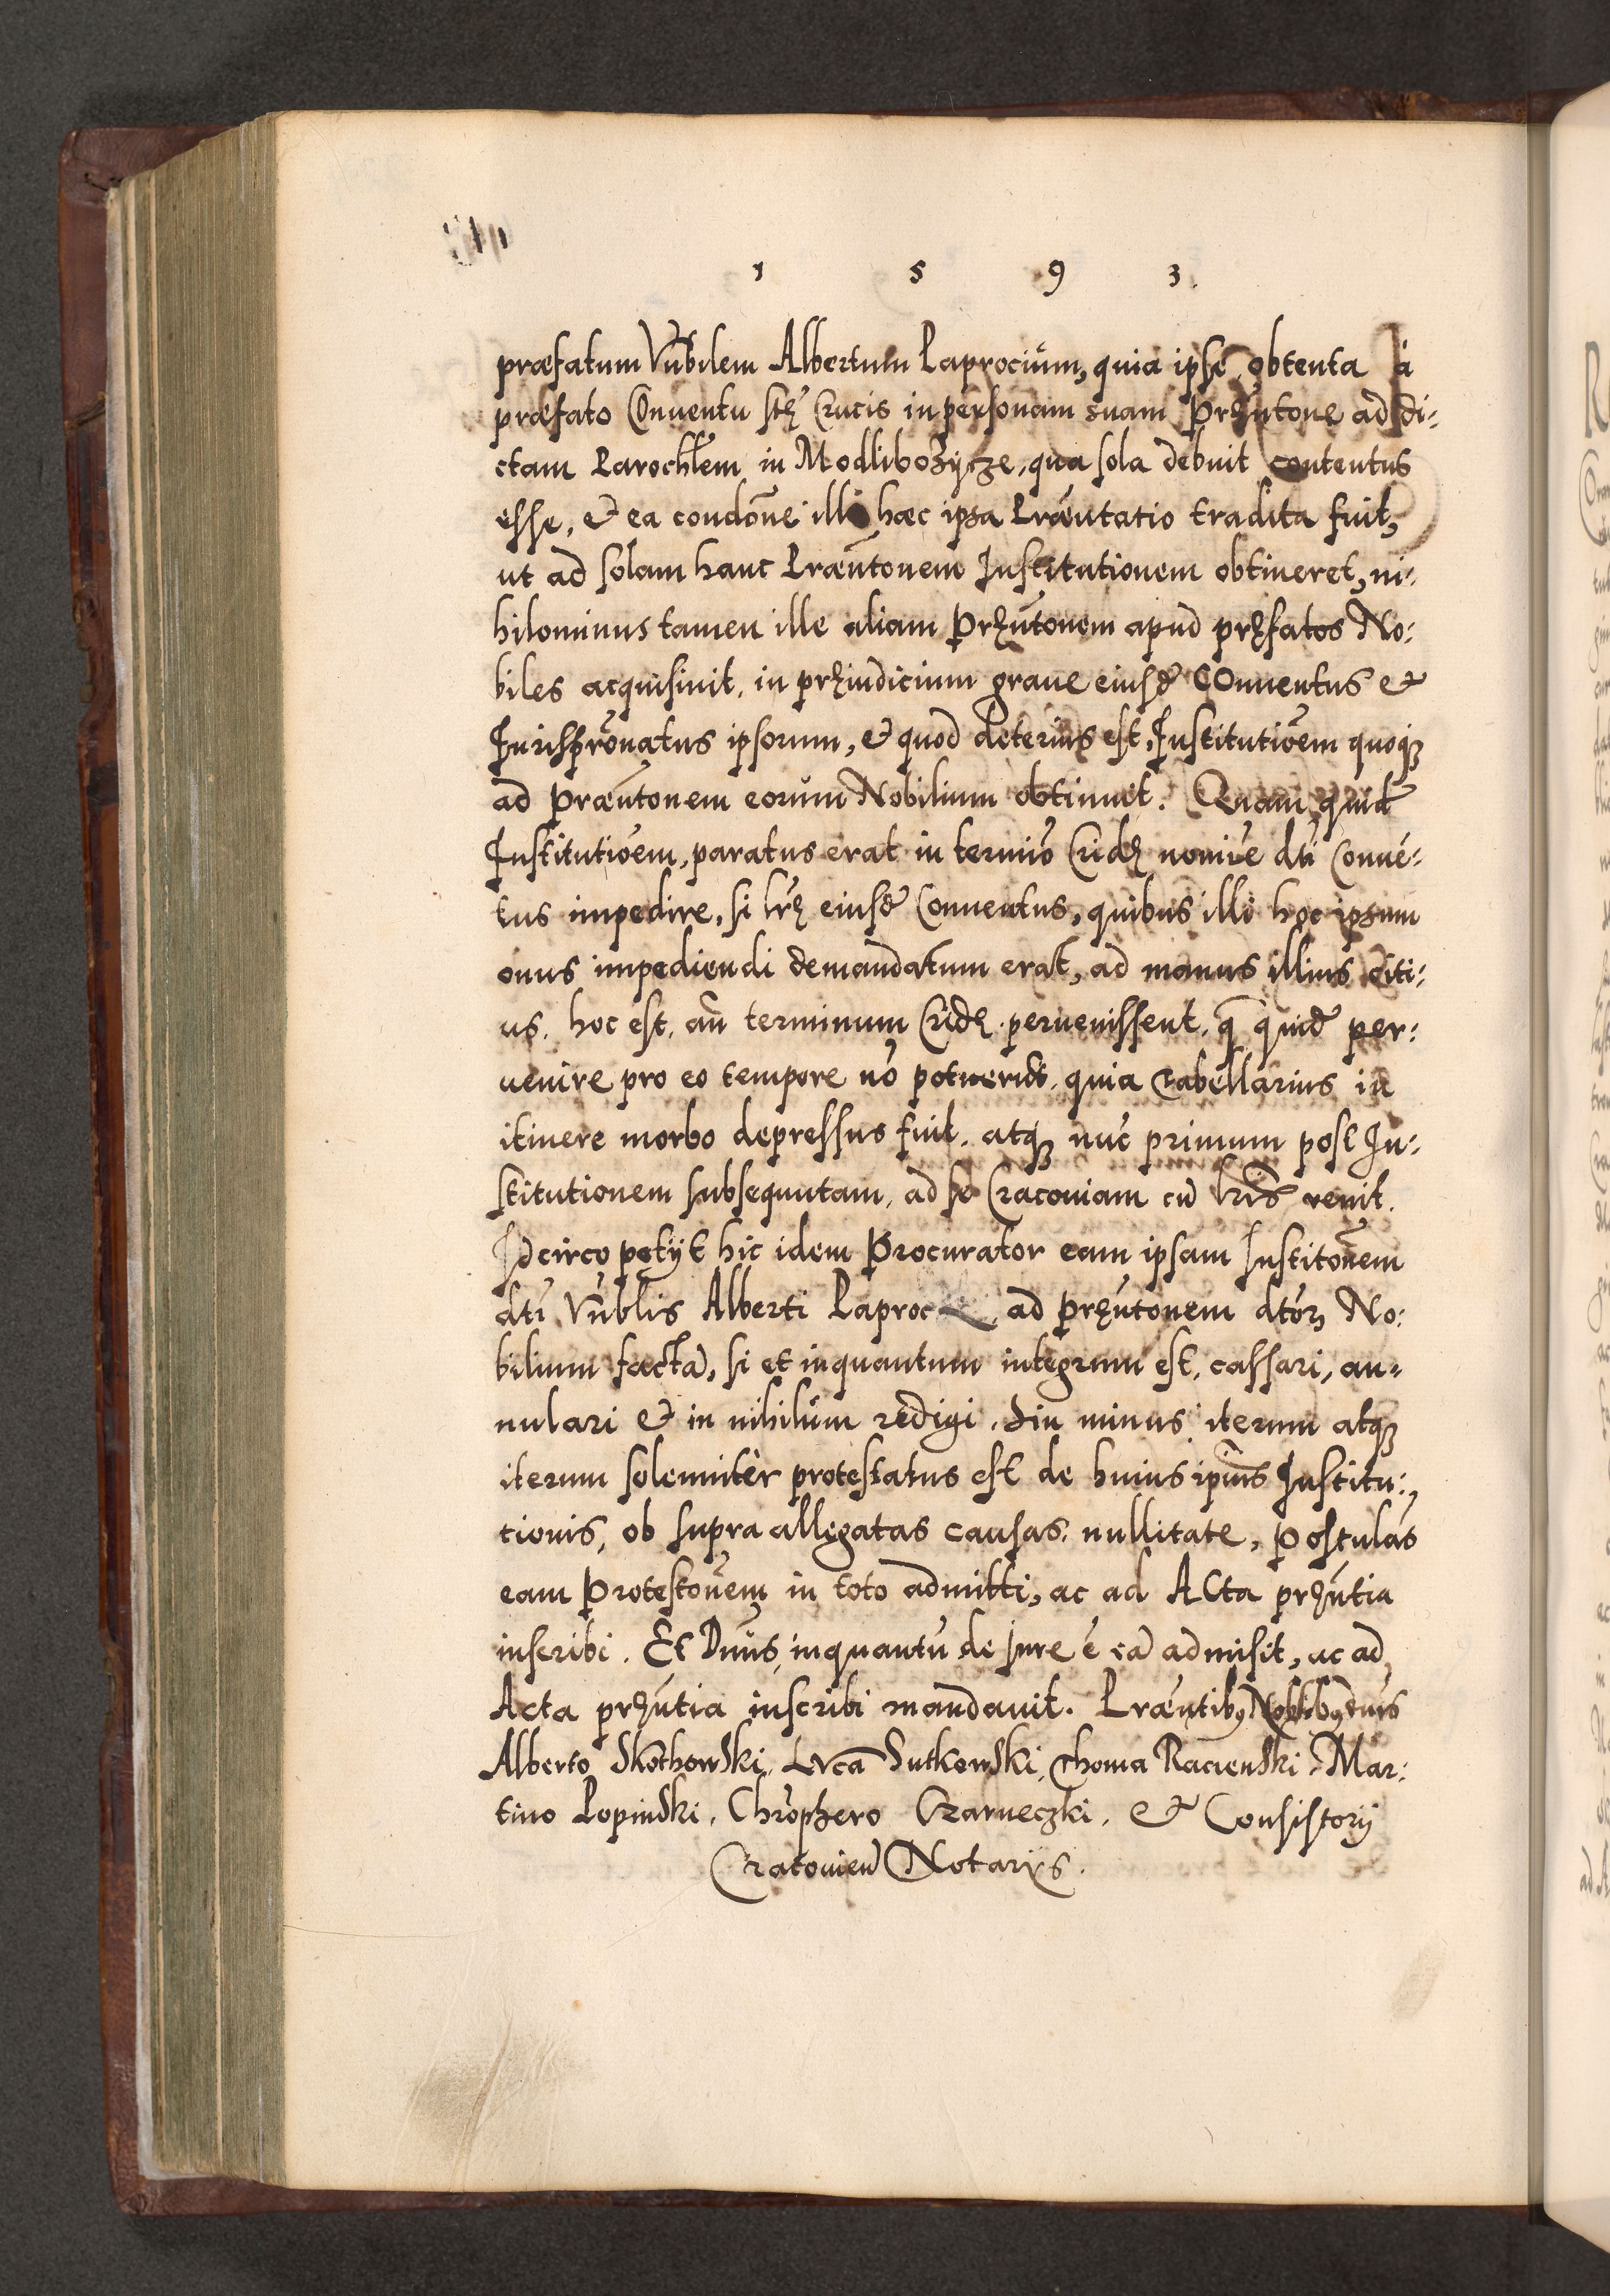 1 5 9 3.
præfatum Vn̄bilem Albertum Paprocium, quia ipse obtenta à
præfato Conuentu stę Crucis in personam suam Pręn̄tone ad di-
ctam Parochlem in Modlibożycze, qua sola debuit contentus
esse, & ea condōne illi hæc ipsa Præn̄tatio tradita fuit,
ut ad solam hanc Præn̄tonem Institutionem obtineret, ni-
hilominus tamen ille aliam Pręn̄tonem apud pręfatos No-
biles acquisiuit, in pręiudicium graue eiusd̃ COnuentus &
Jurisprōnatus ipsorum, & quod deterius est, Institutiōem quoqꝫ
ad Præn̄tonem eorum Nobilium obtinuit. Quam quid̃
Institutiōem, paratus erat in termīo Cridę nomīe dti Conuē-
tus impedire, si lrę eiusd̃ Conuentus, quibus illi hoc ipsum
onus impediendi demandatum erat, ad manus illius citi-
us, hoc est, an̄ terminum Cridę peruenissent, q̄ quid̃ per-
uenire pro eo tempore nō potuerūt, quia tabellarius in
itinere morbo depressus fuit, atqꝫ nūc primum post In-
stitutionem subsequutam, ad se Cracouiam cū lrīs venit.
Idcirco petijt hic idem Procurator eam ipsam Institōnem
dti Vn̄blis Alberti Paprocki, ad pręn̄tonem dtorꝫ No-
bilium factā, si et inquantum integrum est, cassari, an-
nulari & in nihilum redigi. Sin minus iterum atqꝫ
iterum solemniter protestatus est de huius ipsius Institu-
tionis, ob supra allegatas causas, nullitate, Postulās
eam Protestōnem in toto admitti, ac ad ACta pręn̄tia
inscribi. Et Dn̄us, inquantū de Jure ē eā admisit, ac ad
Acta pręn̄tia inscribi mandauit. Præn̄tibꝫ Noblibꝫ
Alberto Skothowski, Lvca Sutkowski, Thoma Racienski, Mar-
tino Popinski, Chrōphero Czarneczki, & Consistorij
Cracouien̄ Notarijs.